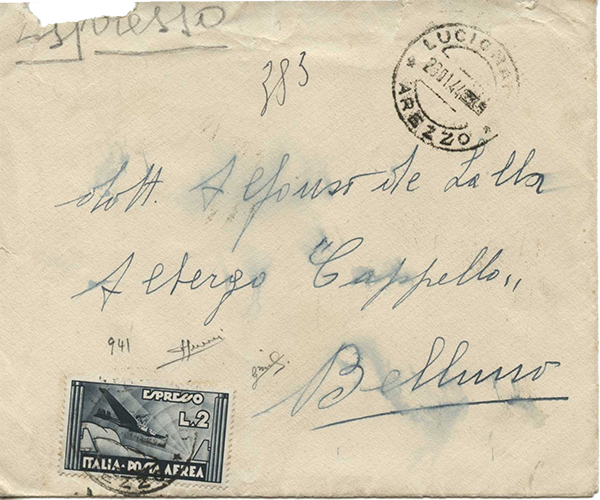 Espresso
383
LUCIGNA
AREZZO
dott. Alfonso de Lalla
Albergo "Cappello"
Belluno
941
ESPRESSO
L.2
ITALIA-POSTA AEREA
EZZO